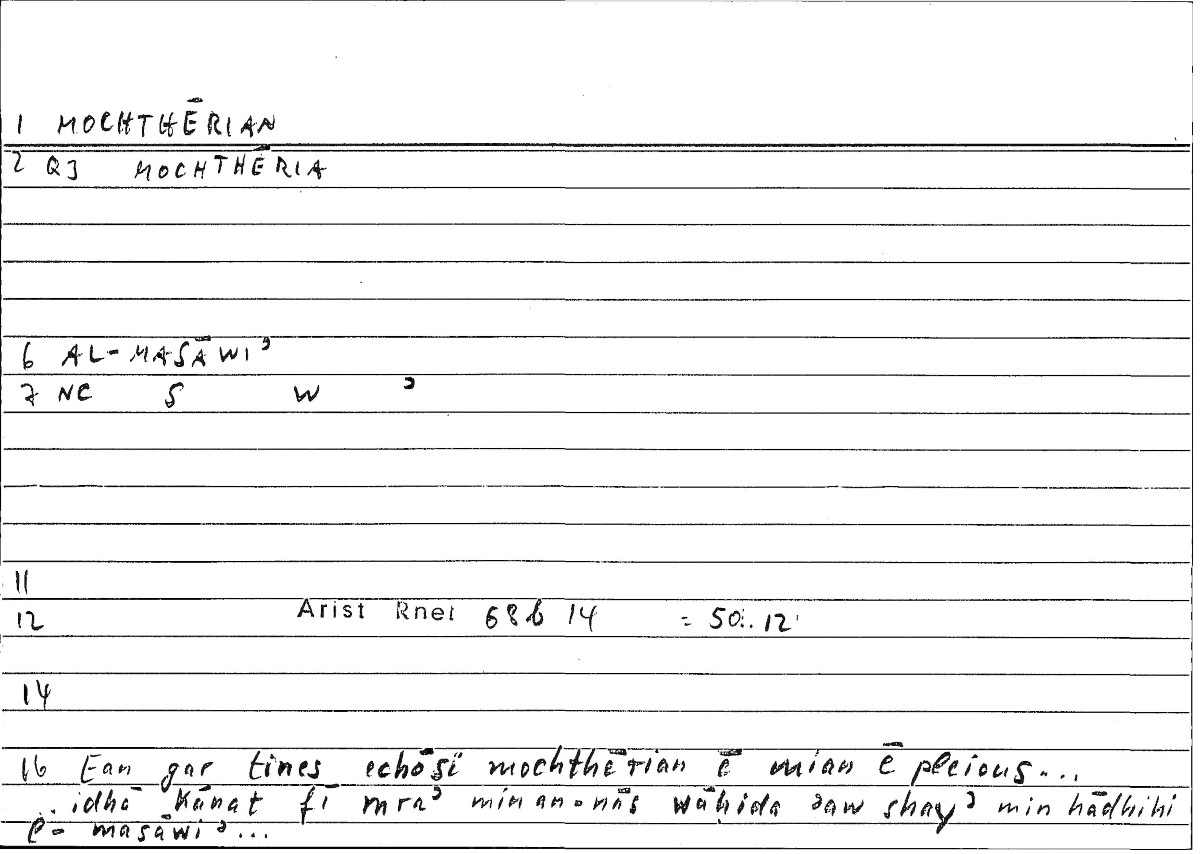 1 MOCHTHĒRIAN
2 Q3 MOCHTHĒRIA
6 AL-MASĀWIʾ
7 NC S W ʾ
11
12 Arist Rhet 68b 14 = 50.. 12
14
16 Ean gar tines echōsi mochthērian ē mian ē pleious...
..idhā kānat fī mraʾ min an-nās wāḥida ʾaw shayʾ min hādhihi
l-masāwiʾ...